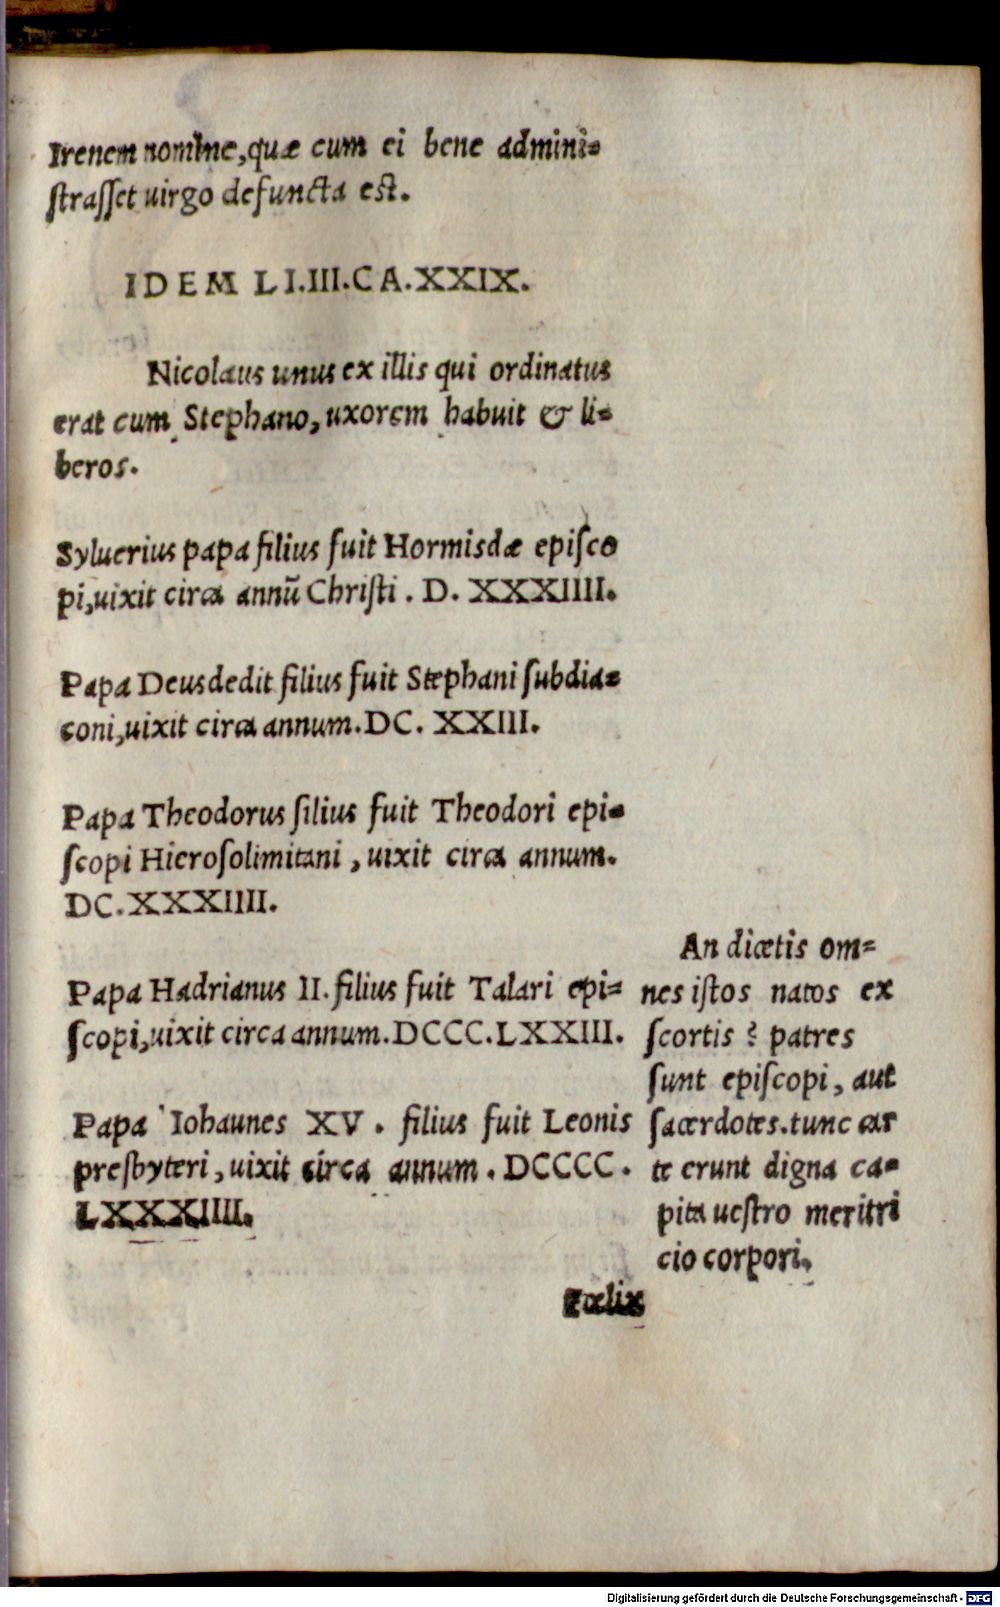 Irenem nomine,quæ cum ei bene admini-
ſtraſſet uirgo defuncta est.
IDEM LI.III.CA.XXIX.
Nicolaus unus ex illis qui ordinatus
erat cum Stephano, uxorem habuit & li-
beros.
Syluerius papa filius fuit Hormisdæ epiſco
pi,uixit circa annū Chriſti . D. XXXIIII.
Papa Deusdedit filius fuit Stephani ſubdia-
coni,uixit circa annum.DC. XXIII.
Papa Theodorus filius fuit Theodori epi-
ſcopi Hieroſolimitani , uixit circa annum.
DC.XXXIIII.
Papa Hadrianus II. filius fuit Talari epi-
ſcopi,uixit circa annum.DCCC.LXXIII.
Papa Iohaunes XV . filius fuit Leonis
preſbyteri, uixit circa annum . DCCCC.
LXXXIIII.
An dicetis om-
nes iſtos natos ex
ſcortis ? patres
ſunt epiſcopi, aut
ſacerdotes.tunc cer
te erunt digna ca-
pita ueſtro meritri
cio corpori.
Fœlix
Digitalisierung gefördert durch die Deutsche Forschungsgemeinschaft - DFG